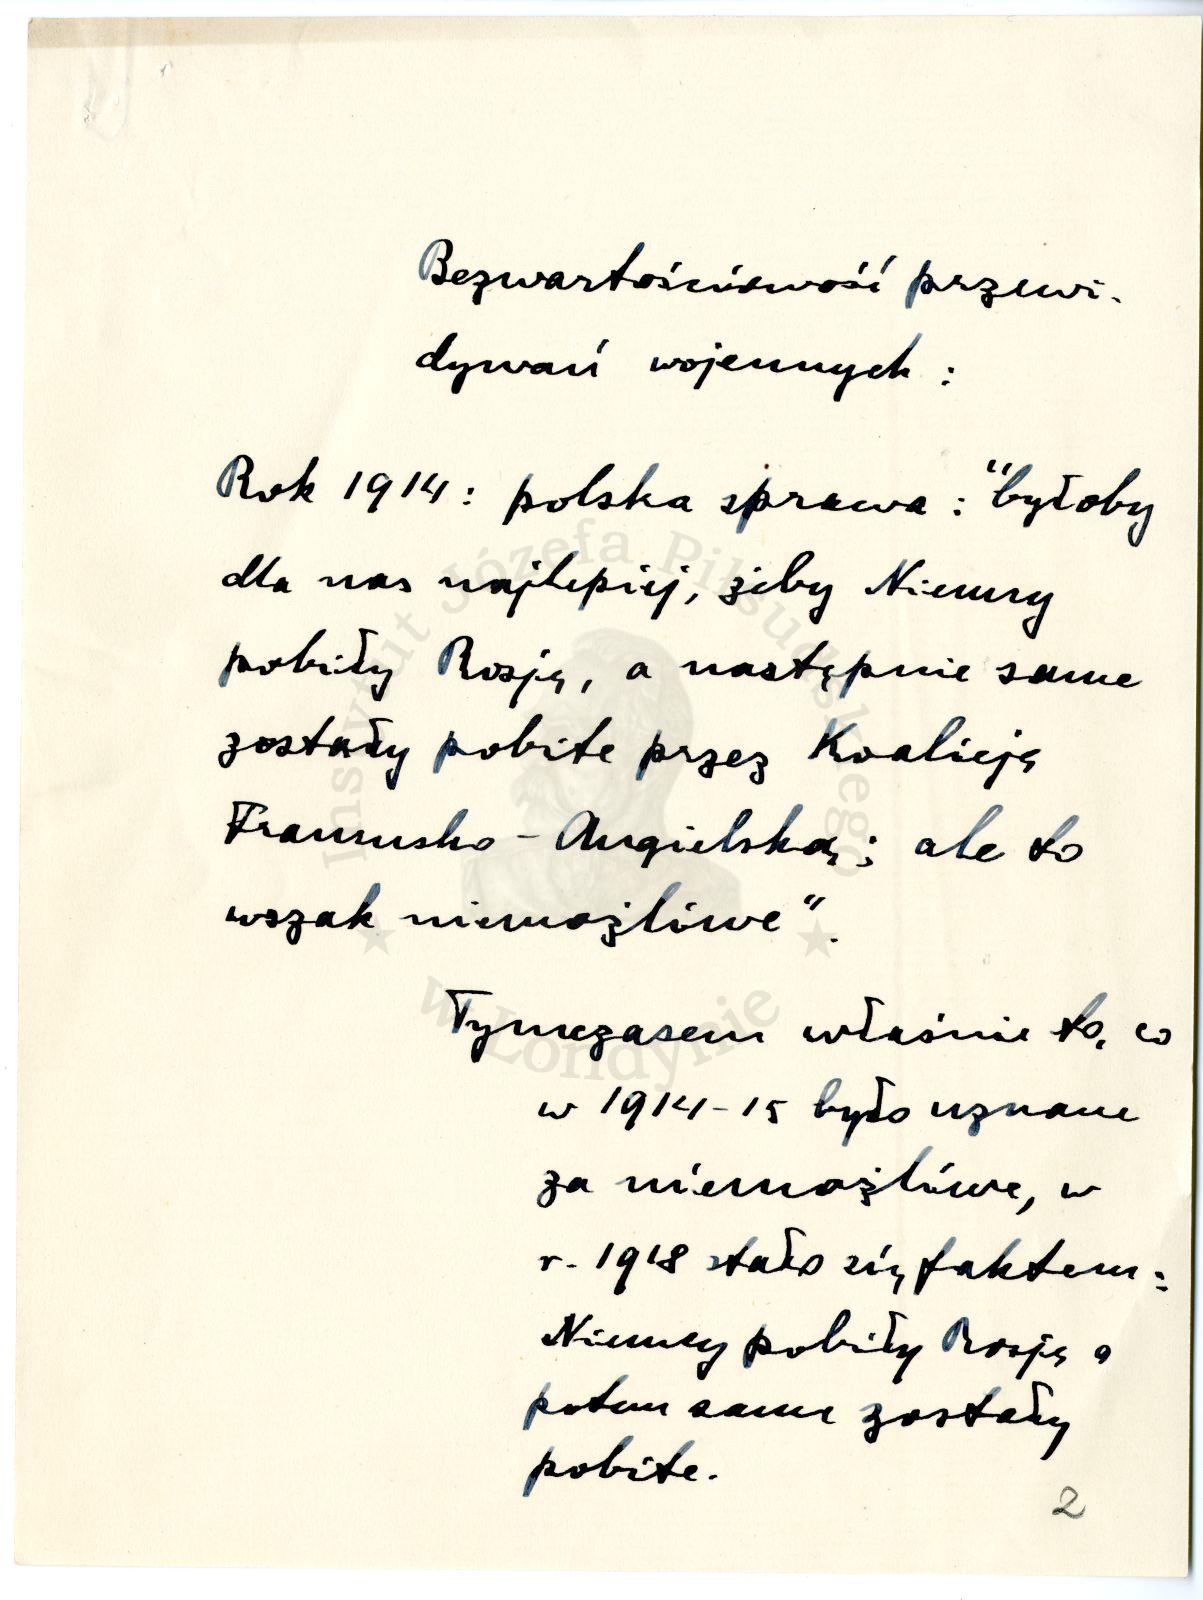 Bezwartościowość przewi-
dywań wojennych :
Rok 1914 : polska sprawa : "byłoby
dla nas najlepiej, żeby Niemcy
pobiły Rosję, a następnie same
zostały pobite przez Koalicję
Francusko - Angielską ; ale to
wszak niemożliwe".
Tymczasem właśnie to, co
w 1914 - 15 było uznane
za niemożliwe, w
r. 1918 stało się faktem :
Niemcy pobiły Rosję a
potem same zostały
pobite.
2
Instytut Józefa Piłsudskiego
w Londynie